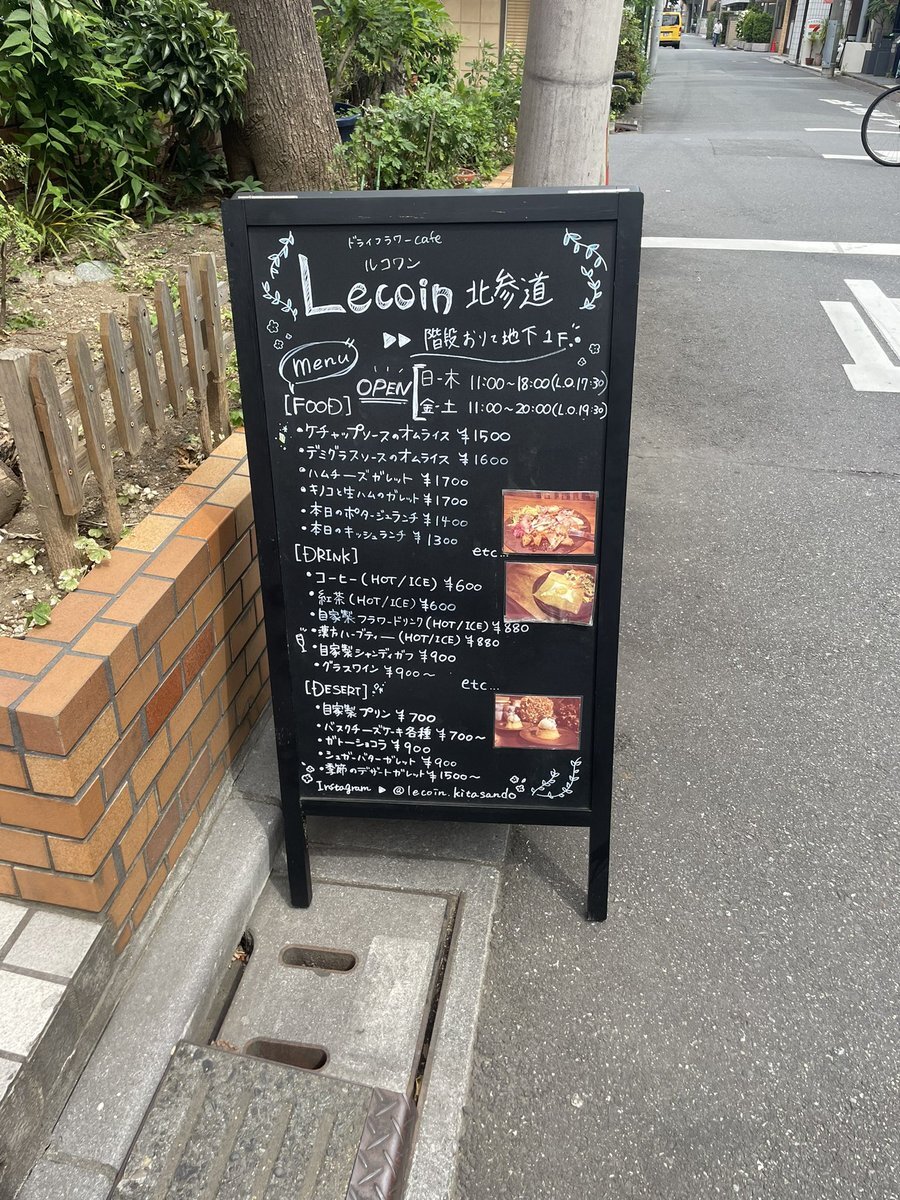 ドライフラワーcafe
ルコワン
Lecoin 北参道
階段おりて地下1F
menu
OPEN
日-木 11:00~18:00(L.O.17:30)
金-土 11:00~20:00(L.O.19:30)
[FOOD]
・ケチャップソースのオムライス ¥1500
・デミグラスソースのオムライス ¥1600
・ハムチーズガレット ¥1700
・キノコと生ハムのガレット ¥1700
・本日のポタージュランチ ¥1400
・本日のキッシュランチ ¥1300
etc...
[DRINK]
・コーヒー(HOT/ICE) ¥600
・紅茶(HOT/ICE) ¥600
・自家製フラワードリンク(HOT/ICE) ¥880
・漢方ハーブティー(HOT/ICE) ¥880
・自家製シャンディガフ ¥900
・グラスワイン ¥900~
etc...
[DESERT]
・自家製プリン ¥700
・バスクチーズケーキ各種 ¥700~
・ガトーショコラ ¥900
・シュガーバターガレット ¥900
・季節のデザートガレット ¥1500~
Instagram ▶ @lecoin.kitasando